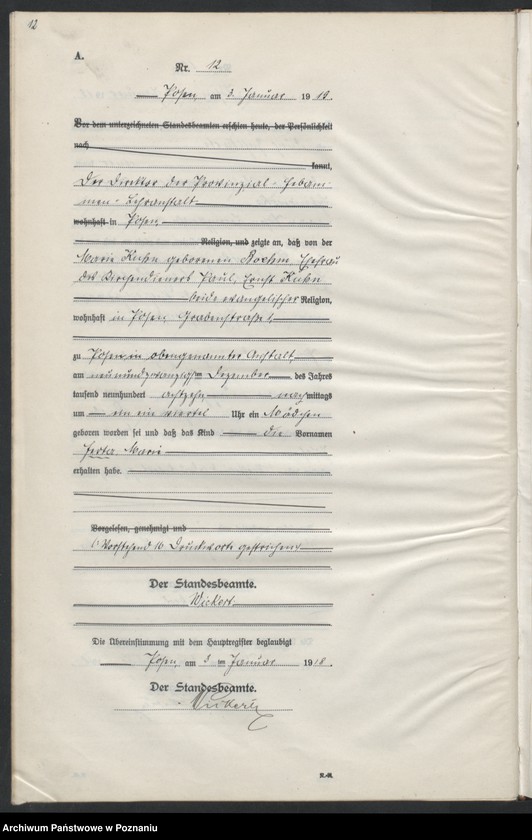 12
A.
Nr. 12
Posen am 3. Januar 1919.
Vor dem unterzeichneten Standesbeamten erschien heute, der Persönlichkeit
nach
kannt,
Der Direktor der Provinzial-Hebam-
men-Lehranstalt
wohnhaft in Posen
Religion, und zeigte an, daß von der
Marie Kuhn geborenen Boehm Ehefrau
des Kirchendieners Paul, Ernst Kuhn
beide evangelischer Religion,
wohnhaft in Posen Grabenstraße
zu Posen, in obengenannter Anstalt
am neunundzwanzigsten Dezember des Jahres
tausend neunhundert achtzehn nachmittags
um ein ein viertel Uhr ein Mädchen
geboren worden sei und daß das Kind die Vornamen
Herta Marie
erhalten habe.
Vorgelesen, genehmigt und
Vorstehend 16 Druckworte gestrichen
Der Standesbeamte.
Wickert
Die Übereinstimmung mit dem Hauptregister beglaubigt
Posen, am 3 ten Januar 1919.
Der Standesbeamte.
Wickert
Archiwum Państwowe w Poznaniu